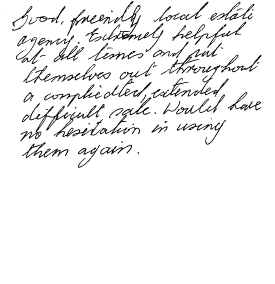 Good, friendly local estate
agency. Extremely helpful
at all times and put
themselves out throughout
a complicated, extended,
difficult sale. Would have
no hesitation in using
them again.